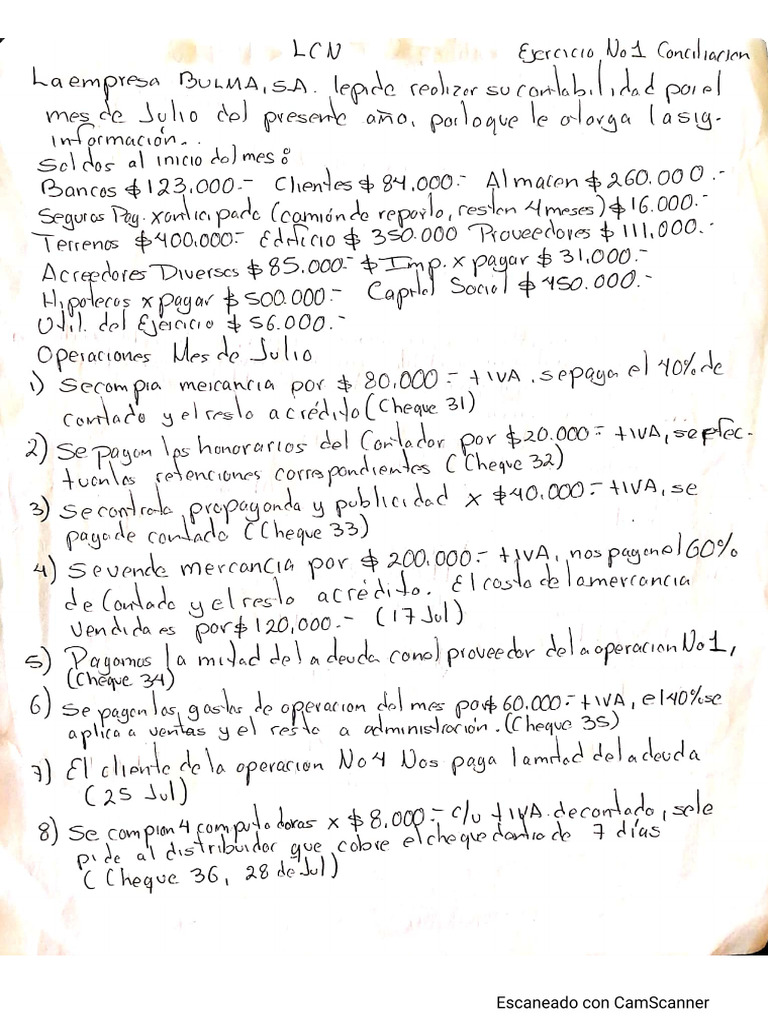 LCN Ejercicio No1 Conciliacion
La empresa BULMA, S.A. le pide realizar su contabilidad por el
mes de Julio del presente año, por lo que le otorga la sig.
información..
Saldos al inicio del mes:
Bancos $123,000.- Clientes $ 84,000.- Almacen $260.000.-
Seguros Pag. x anticipado (camión de reparto, restan 4 meses) $16.000.-
Terrenos $400,000.- Edificio $ 350.000 Proveedores $ 111,000.-
Acreedores Diversos $85.000.- $ Imp. x pagar $ 31,000.-
Hipotecas x pagar $500.000.- Capital Social $ 450.000.-
Util. del Ejercicio $ 56.000.-
Operaciones Mes de Julio
1) Se compra mercancia por $ 80,000.- + IVA. se paga el 40% de
contado y el resto a crédito (Cheque 31)
2) Se pagan los honorarios del Contador por $20.000.- + IVA, se efec-
tuan las retenciones correspondientes (Cheque 32)
3) Se contrata propaganda y publicidad x $40,000.- + IVA, se
paga de contado (Cheque 33)
4) Se vende mercancia por $ 200,000.- + IVA, nos pagan el 60%
de Contado y el resto a crédito. El costo de la mercancia
vendida es por $ 120,000.- (17 Jul)
5) Pagamos la mitad de la deuda con el proveedor de la operacion No1,
(Cheque 34)
6) Se pagan los, gastos de operacion del mes por $ 60.000.- + IVA, el 40% se
aplica a ventas y el resto a administración. (Cheque 35)
7) El cliente de la operacion No 4 Nos paga la mitad de la deuda
(25 Jul)
8) Se compran 4 computadoras x $ 8,000.- c/u + IVA de contado, se le
pide al distribuidor que cobre el cheque dentro de 7 días
(Cheque 36, 28 de Jul)
Escaneado con CamScanner